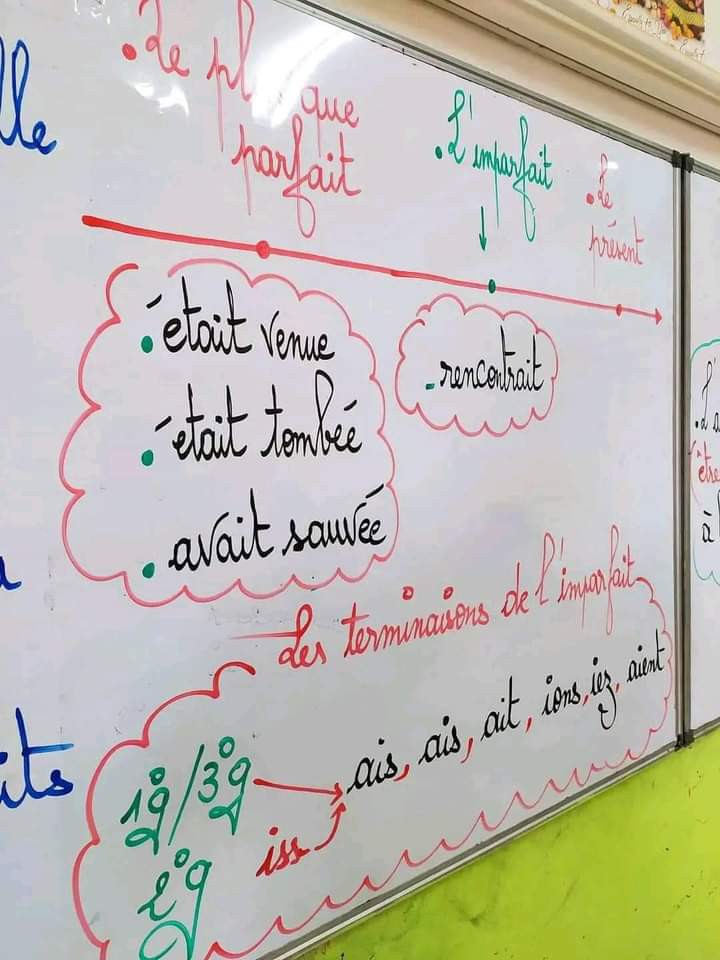 lle
.Le pl que
parfait
.L'imparfait
.Le
présent
. était venue
. était tombée
. avait sauvée
-rencontrait
Les terminaisons de l'imparfait
1°g/3°g ais, ais, ait, ions, iez, aient
2°g iss
its
être
à